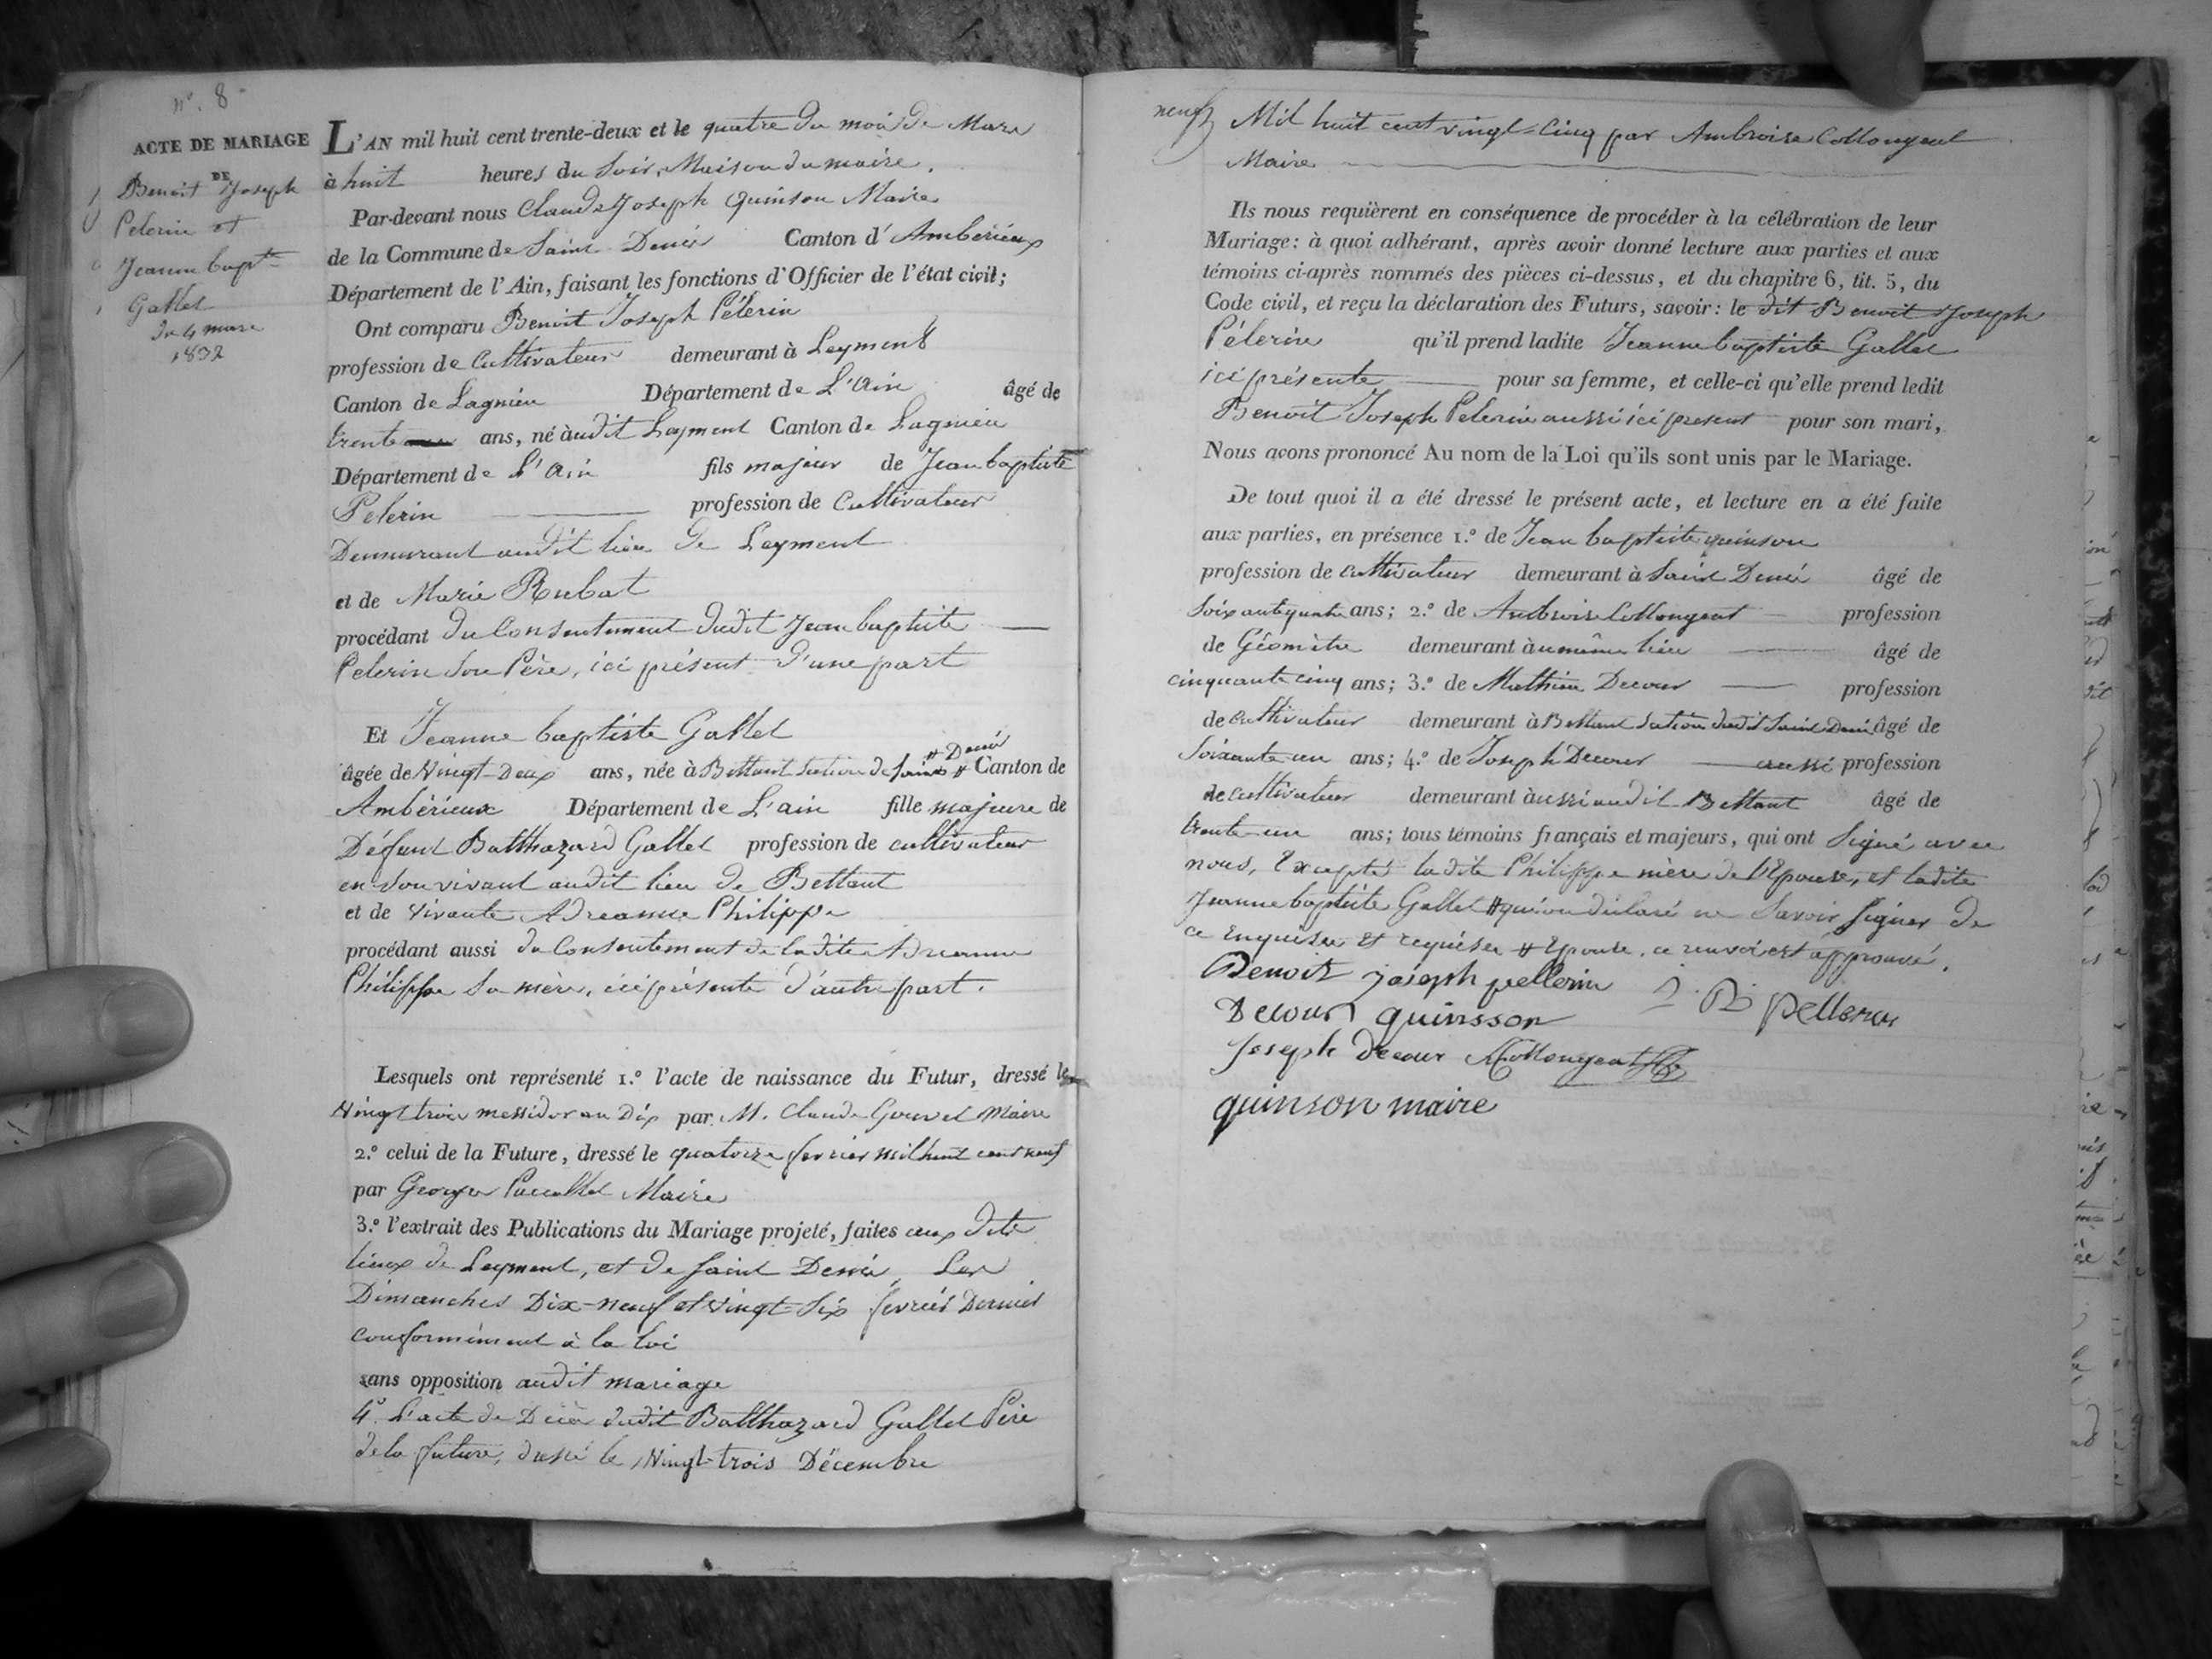 n°. 8
ACTE DE MARIAGE
DE
Benoit Joseph
Pelerin et
Jeanne bapte
Gallet
du 4 mars
1832
L'AN mil huit cent trente-deux et le quatre du mois de Mars
à huit heures du Soir, Maison du maire.
Par-devant nous Claude Joseph quinson Maire
de la Commune de Saint Denis Canton d'Ambérieux
Département de l'Ain, faisant les fonctions d'Officier de l'état civil;
Ont comparu Benoit Joseph Pélerin
profession de Cultivateur demeurant à Leyment
Canton de Lagnieu Département de L'Ain âgé de
trente ans, né audit Leyment Canton de Lagnieu
Département de L'Ain fils majeur de Jean baptiste
Pelerin profession de Cultivateur
Demeurant audit lieu de Leyment
et de Marie Rubat
procédant du Consentement dudit Jean baptiste
Pelerin Son Père, ici présent d'une part
Et Jeanne baptiste Gallet
# Denis
âgée de Vingt-Deux ans, née à Bettant Section de Saint # Canton de
Ambérieux Département de L'ain fille majeure de
Défunt Balthazard Gallet profession de cultivateur
en Son vivant audit lieu de Bettant
et de vivante Adreanne Philippe
procédant aussi du Consentement de ladite Adreanne
Philippe Sa mère, ici présente d'autre part.
Lesquels ont représenté 1.° l'acte de naissance du Futur, dressé le
Vingt trois messidor an Dix par M. Claude Maire
2.° celui de la Future, dressé le quatorze fevrier mil huit cent neuf
par George Maire
3.° l'extrait des Publications du Mariage projeté, faites aux dits
lieux de Leyment, et de Saint Denis, Les
Dimanches Dix-neuf et vingt-Six fevrier Dernier
conformément à la loi
sans opposition audit mariage
4°. L'acte de Décès dudit Balthazard Gallet Père
de la future, dressé le Vingt-trois Décembre
Mil huit cent vingt-cinq par Ambroise Collongeat
Maire
Ils nous requièrent en conséquence de procéder à la célébration de leur
Mariage: à quoi adhérant, après avoir donné lecture aux parties et aux
témoins ci-après nommés des pièces ci-dessus, et du chapitre 6, tit. 5, du
Code civil, et reçu la déclaration des Futurs, savoir: le dit Benoit Joseph
Pélerin qu'il prend ladite Jeanne baptiste Gallet
ici présente pour sa femme, et celle-ci qu'elle prend ledit
Benoit Joseph Pelerin aussi ici present pour son mari,
Nous avons prononcé Au nom de la Loi qu'ils sont unis par le Mariage.
De tout quoi il a été dressé le présent acte, et lecture en a été faite
aux parties, en présence 1.° de Jean baptiste quinson
profession de cultivateur demeurant à Saint Denis âgé de
Soixante quatre ans; 2.° de Ambroise Collongeat profession
de Géomètre demeurant au même lieu âgé de
cinquante cinq ans; 3.° de Mathieu Decour profession
de cultivateur demeurant à Bettant Section dudit Saint Denis âgé de
Soixante un ans; 4.° de Joseph Decour aussi profession
de cultivateur demeurant aussi audit Bettant âgé de
trente-un ans; tous témoins français et majeurs, qui ont Signé avec
nous, Excepté ladite Philippe mère de l'Epouse, et ladite
Jeanne baptiste Gallet # qui ont déclaré ne Savoir Signer de
ce Enquises et requises # Epouse. ce renvoi est approuvé.
Benoit joseph pellerin J. B. pellerin
Decour quinsson
Joseph decour Collongeat
quinson maire